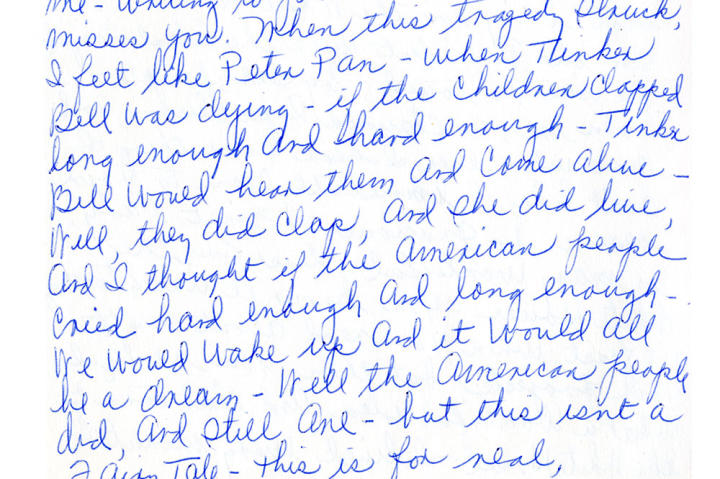 me - writing to
misses you. When this tragedy struck,
I felt like Peter Pan - when Tinker
Bell was dying - if the children clapped
long enough and hard enough - Tinker
Bell would hear them and come alive -
Well, they did clap, and she did live,
And I thought if the American people
cried hard enough and long enough -
We would wake up and it would all
be a dream - Well the American people
did, and still are - but this isnt a
Fairy Tale - this is for real,